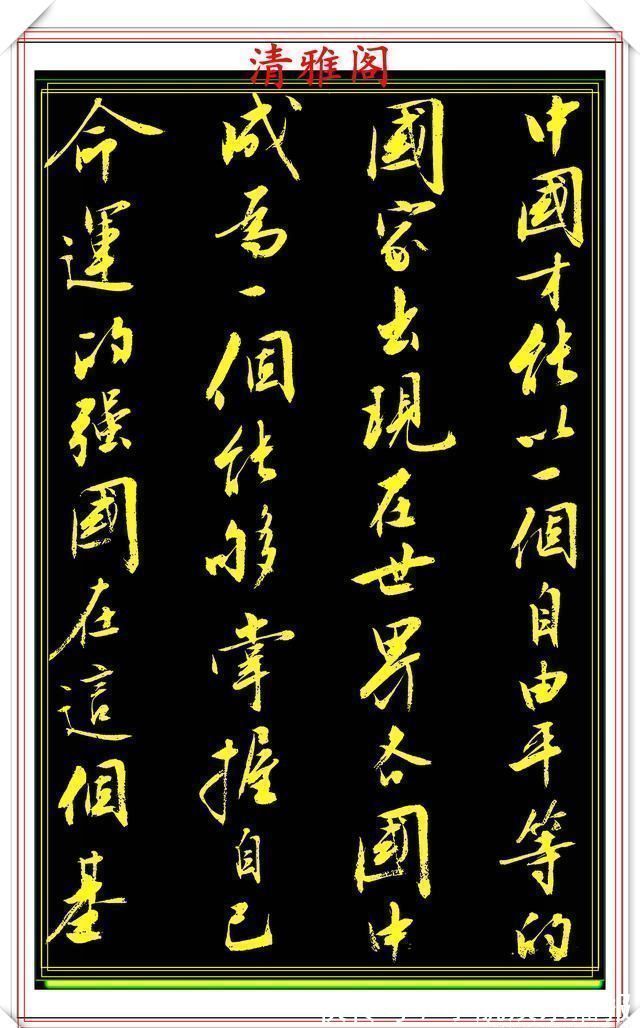 清雅阁
中國才能以一個自由平等的
國家出現在世界各國中
成為一個能夠掌握自己
命運的强國在這個基